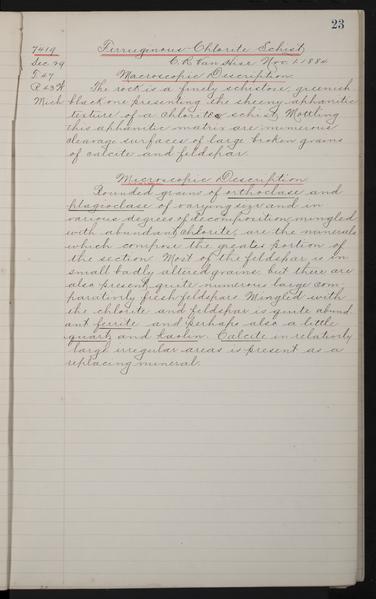 23
7419 Ferruginous Chlorite Schist
Sec. 29 C. R. Van Hise Nov. 1. 1884
T. 47 Macroscopic Description
R. 43 W. The rock is a finely schistose, greenish
Mich black one presenting the sheeny aphanitic
texture of a chlorite schist. Mottling
this aphanitic matrix are numerous
cleavage surfaces of large broken grains
of calcite and feldspar.
Microscopic Description
Rounded grains of orthoclase and
plagioclase of varying size and in
various degrees of decomposition, mingled
with abundant chlorite, are the minerals
which compose the greater portion of
the section. Most of the feldspar is in
small badly altered grains. but there are
also present quite numerous large com
paratively fresh feldspars. Mingled with
the chlorite and feldspar is quite abund
ant ferrite and perhaps also a little
quartz and kaolin. Calcite in relatively
large irregular areas is present as a
replacing mineral.